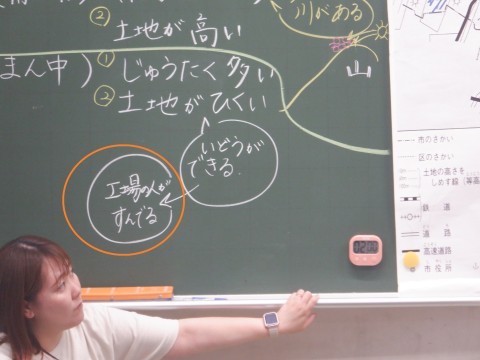 ② 土地が高い
川がある
まん中) ① じゅうたく多い
② 土地がひくい
山
いどうが
できる.
工場の人が
すんでる
市のさかい
区のさかい
土地の高さを
しめす線
鉄 道
道 路
高速道路
市役所